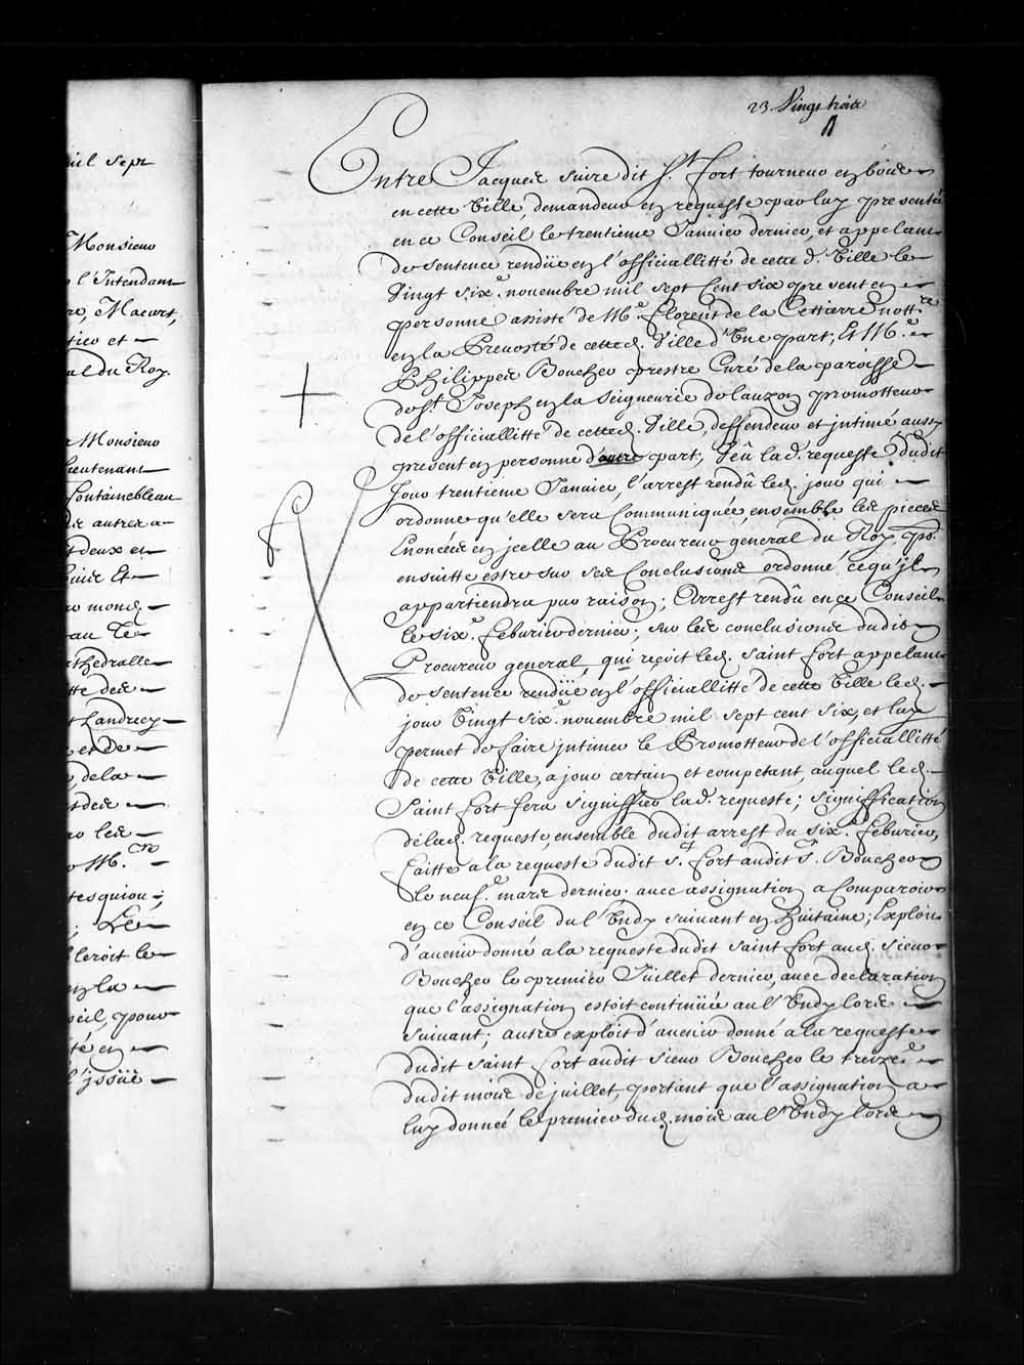 23. Vingt trois
Entre Jacques suire dit St. fort tourneur en bois
en cette Ville, demandeur en requeste par luy presentée
en ce Conseil le trentieme Janvier dernier, et appelant
de sentence rendüe en l'officiallitté de cette d. Ville le
Vingt six.e novembre mil sept Cent six present en
personne assisté de M.e Florent de la Cettierre nott.re
en la Prevosté de cette d. Ville d'Une part; Et M.e
Philippes Boucher prestre Curé de la paroisse
de St. Joseph en la Seigneurie de lauzon promotteur
de l'officiallitté de cette d. Ville, deffendeur et jntimé aussy
present en personne d'autre part; Veû lad. requeste Dudit
Jour trentieme Janvier, l'arrest rendû led. jour qui
ordonne qu'elle sera Communiquée, ensemble les pieces
Enoncées en jcelle au Procureur general du Roy, po.r
ensuitte estre sur ses Conclusions ordonné ce qu'jl
appartiendra par raison; Arrest rendû en ce Conseil
le six.e feburier dernier; sur les conclusions dudit
Procureur general, qui reçoit led. saint fort appelant
de sentence rendüe en l'officiallitté de cette Ville led.
jour Vingt six.e novembre mil sept cent six, et luy
permet de faire jntimer le Promotteur de l'officiallitté
de cette Ville, a jour certain et competant, auquel led.
Saint fort fera signiffier lad. requeste; signiffication
de lad. requeste, ensemble dudit arrest du six.e feburier,
faitte a la requeste dudit St. fort audit Sr. Boucher
le neuf.e mars dernier. avec assignation a Comparoir
en ce Conseil du l'Undy suivant en huitaine; Exploit
d'avenir donné a la requeste dudit saint fort aud. sieur
Boucher le premier Juillet dernier, avec declaration
que l'assignation estoit continüée au l'Undy lors
suivant; autre exploit d'avenir donné a la requeste
dudit saint fort audit sieur Boucher le treize.e
dudit mois de juillet, portant que l'assignation a
luy donnée le premier dud. mois au l'Undy lors
iil sept
Monsieur
l'Intendant
Macart,
et
al du Roy.
Monsieur
Lieutenant
fontainebleau
autres a
deux et
Et
mons.
au
athedralle
des
Landrecy
et De
dela
des
les
Mre
tesquiou;
Le
le
en la
seil, pour
té en
l'jssüe